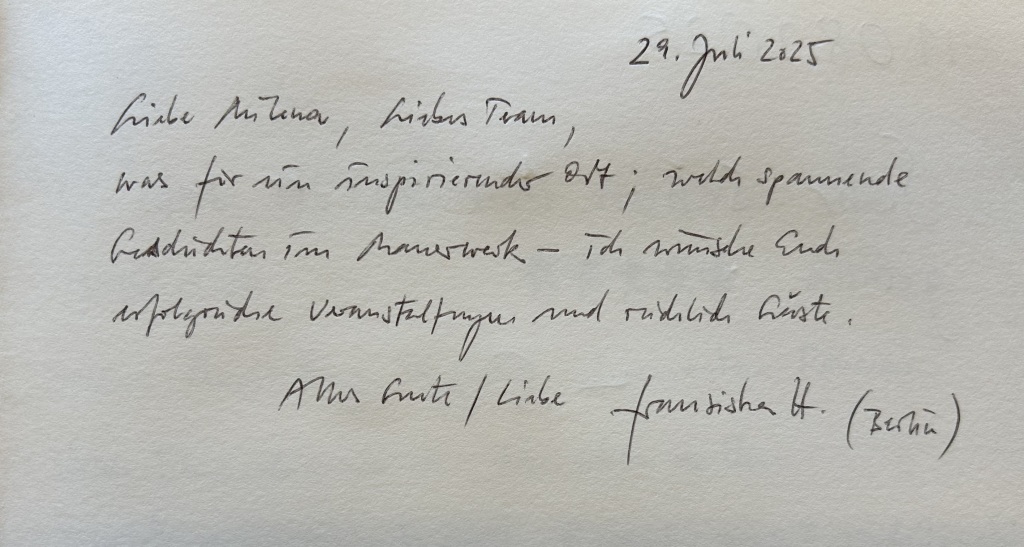 29. Juli 2025
Liebe Milena, Liebes Team,
was für ein inspirierender Ort; welch spannende
Geschichten im Mauerwerk – ich wünsche Euch
erfolgreiche Veranstaltungen und reichlich Gäste.
Alles Gute / Liebe Franziska H. (Berlin)